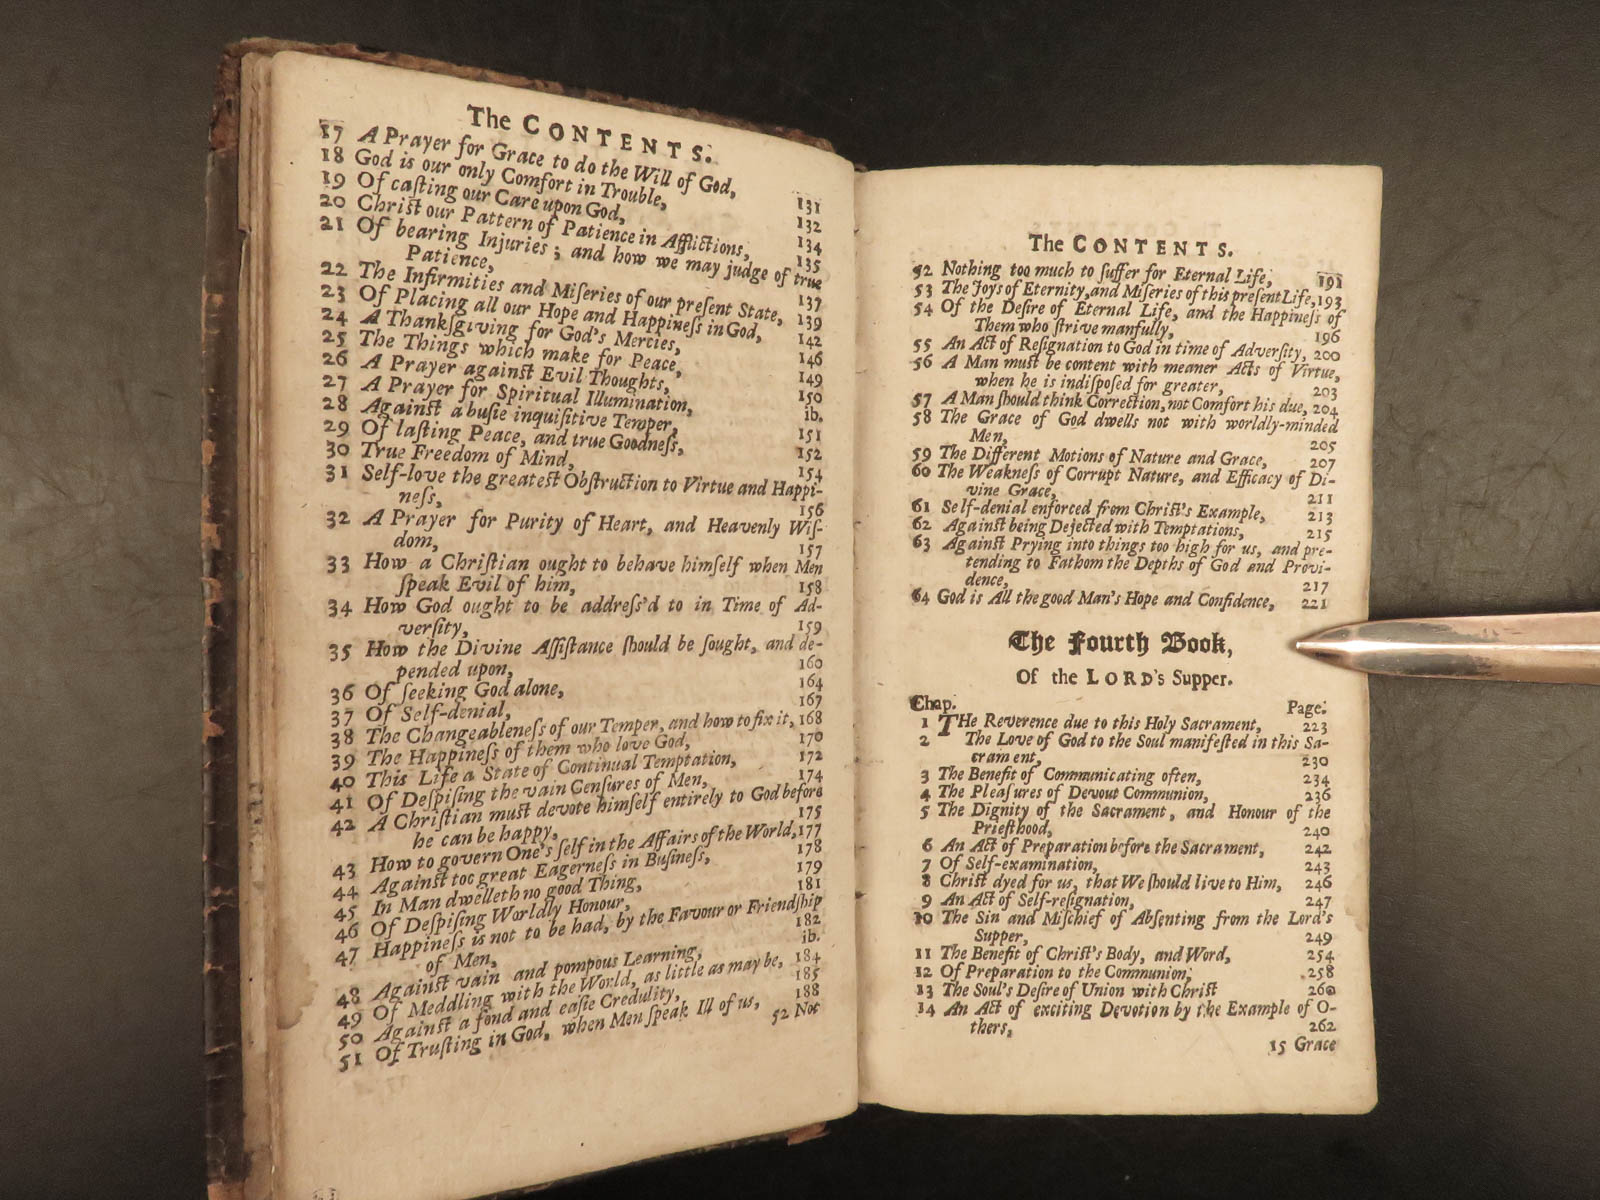 The CONTENTS.
17 A Prayer for Grace to do the Will of God, 131
18 God is our only Comfort in Trouble, 132
19 Of caſting our Care upon God, 134
20 Chriſt our Pattern of Patience in Afflictions, 135
21 Of bearing Injuries; and how we may judge of true
Patience, 137
22 The Infirmities and Miſeries of our preſent State, 139
23 Of Placing all our Hope and Happineſs in God, 142
24 A Thankſgiving for God's Mercies, 146
25 The Things which make for Peace, 149
26 A Prayer againſt Evil Thoughts, 150
27 A Prayer for Spiritual Illumination, ib.
28 Againſt a buſie inquiſitive Temper, 151
29 Of laſting Peace, and true Goodneſs, 152
30 True Freedom of Mind, 154
31 Self-love the greateſt Obſtruction to Virtue and Happi-
neſs, 156
32 A Prayer for Purity of Heart, and Heavenly Wiſ-
dom, 157
33 How a Chriſtian ought to behave himſelf when Men
ſpeak Evil of him, 158
34 How God ought to be addreſs'd to in Time of Ad-
verſity, 159
35 How the Divine Aſſiſtance ſhould be ſought, and de-
pended upon, 160
36 Of ſeeking God alone, 164
37 Of Self-denial, 167
38 The Changeableneſs of our Temper, and how to fix it, 168
39 The Happineſs of them who love God, 170
40 This Life a State of Continual Temptation, 172
41 Of Deſpiſing the vain Cenſures of Men, 174
42 A Chriſtian muſt devote himſelf entirely to God before
he can be happy, 175
43 How to govern One's ſelf in the Affairs of the World, 177
44 Againſt too great Eagerneſs in Buſineſs, 178
45 In Man dwelleth no good Thing, 179
46 Of Deſpiſing Worldly Honour, 181
47 Happineſs is not to be had, by the Favour or Friendſhip
of Men, 182
48 Againſt vain and pompous Learning, ib.
49 Of Meddling with the World, as little as may be, 184
50 Againſt a fond and eaſie Credulity, 185
51 Of Truſting in God, when Men ſpeak Ill of us, 188
52 Not
The CONTENTS.
52 Nothing too much to ſuffer for Eternal Life, 191
53 The Joys of Eternity, and Miſeries of this preſent Life, 193
54 Of the Deſire of Eternal Life, and the Happineſs of
Them who ſtrive manfully, 196
55 An Act of Reſignation to God in time of Adverſity, 200
56 A Man muſt be content with meaner Acts of Virtue,
when he is indiſpoſed for greater, 203
57 A Man ſhould think Correction, not Comfort his due, 204
58 The Grace of God dwells not with worldly-minded
Men, 205
59 The Different Motions of Nature and Grace, 207
60 The Weakneſs of Corrupt Nature, and Efficacy of Di-
vine Grace, 211
61 Self-denial enforced from Chriſt's Example, 213
62 Againſt being Dejected with Temptations, 215
63 Againſt Prying into things too high for us, and pre-
tending to Fathom the Depths of God and Provi-
dence, 217
64 God is All the good Man's Hope and Confidence, 221
The Fourth Book,
Of the LORD's Supper.
Chap. Page.
1 THe Reverence due to this Holy Sacrament, 223
2 The Love of God to the Soul manifeſted in this Sa-
crament, 230
3 The Benefit of Communicating often, 234
4 The Pleaſures of Devout Communion, 236
5 The Dignity of the Sacrament, and Honour of the
Prieſthood, 240
6 An Act of Preparation before the Sacrament, 242
7 Of Self-examination, 243
8 Chriſt dyed for us, that We ſhould live to Him, 246
9 An Act of Self-reſignation, 247
10 The Sin and Miſchief of Abſenting from the Lord's
Supper, 249
11 The Benefit of Chriſt's Body, and Word, 254
12 Of Preparation to the Communion, 258
13 The Soul's Deſire of Union with Chriſt 260
14 An Act of exciting Devotion by the Example of O-
thers, 262
15 Grace